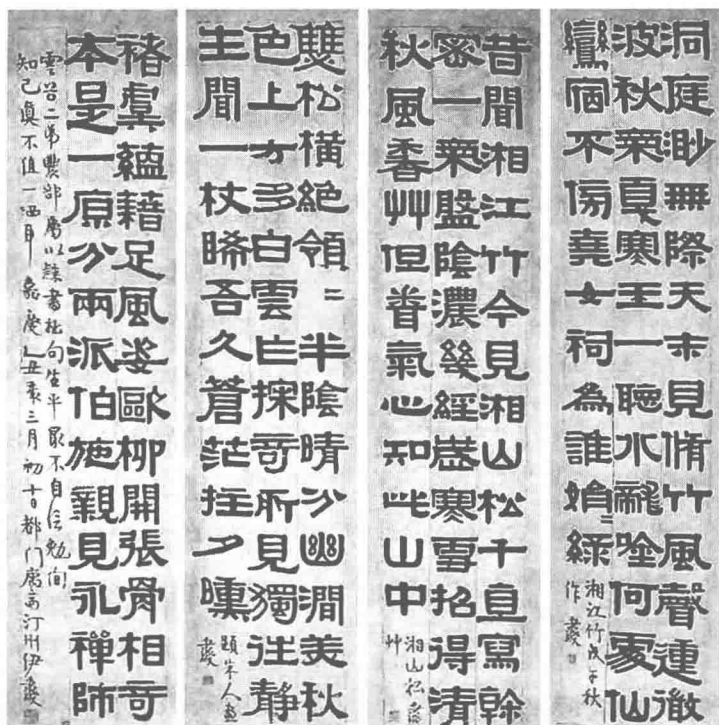 洞庭渺無際天末見脩竹風聲連澈
波秋葉戛寒玉一聽水龍唫何處仙
鸞宿不傍堯女祠為誰娟=綠
湘江竹戊子秋
作 綬
昔聞湘江竹今見湘山松千直寫幹
密一葉盤陰濃幾經歲寒雪招得清
秋風香艸但眷氣心知此山中
湘山松 綬
艸
雙松橫絕領=半陰晴分幽澗美秋
色上方多白雲亡探奇所見獨往靜
生聞一杖晞吾久蒼茫拄夕曛
題朱人畫
綬
褚虞蘊藉足風姿歐柳開張骨相奇
本是一原分兩派伯施親見永禪師
雲谷二弟農部屬以隸書拙句生平最不自信勉徇
知己真不值一洒耳 嘉慶乙丑歲三月初十日都门寓齋汀州伊秉綬